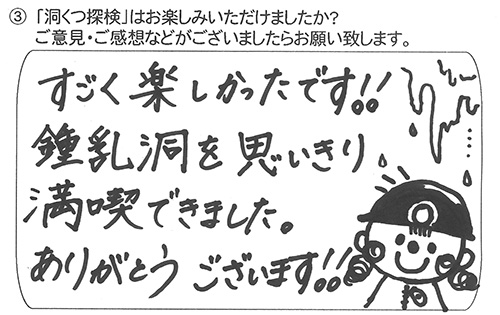 ③「洞くつ探検」はお楽しみいただけましたか?
ご意見・ご感想などがございましたらお願い致します。
すごく楽しかったです!!
鍾乳洞を思いきり
満喫できました。
ありがとうございます!!